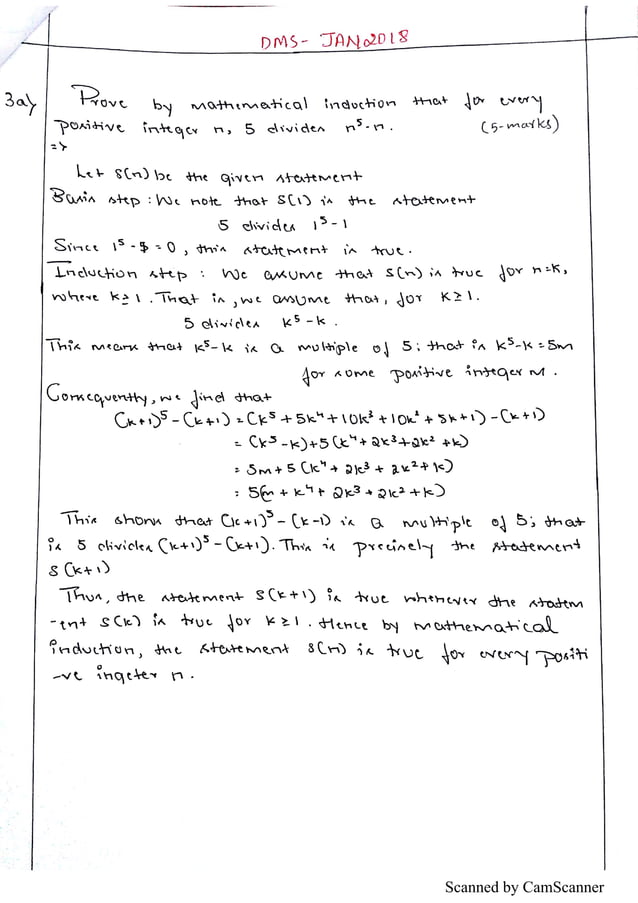 DMS- JAN2018
3a) Prove by mathematical induction that for every
positive integer n, 5 divides n⁵-n. (5-marks)
=>
Let S(n) be the given statement
Basis step : We note that S(1) is the statement
5 divides 1⁵-1
Since 1⁵-$=0, this statement is true.
Induction step : We assume that S(n) is true for n=k,
where k≥1. That is, we assume that, for k≥1.
5 divides k⁵-k.
This means that k⁵-k is a multiple of 5; that is k⁵-k=5m
for some positive integer m.
Consequently, we find that
(k+1)⁵-(k+1) = (k⁵+5k⁴+10k³+10k²+5k+1)-(k+1)
= (k⁵-k)+5(k⁴+2k³+2k²+k)
= 5m+5(k⁴+2k³+2k²+k)
= 5(m+k⁴+2k³+2k²+k)
This shows that (k+1)⁵-(k-1) is a multiple of 5; that
is 5 divides (k+1)⁵-(k+1). This is precisely the statement
S(k+1)
Thus, the statement S(k+1) is true whenever the statem
-ent S(k) is true for k≥1. Hence by mathematical
induction, the statement S(n) is true for every positi
-ve ingeter n.
Scanned by CamScanner